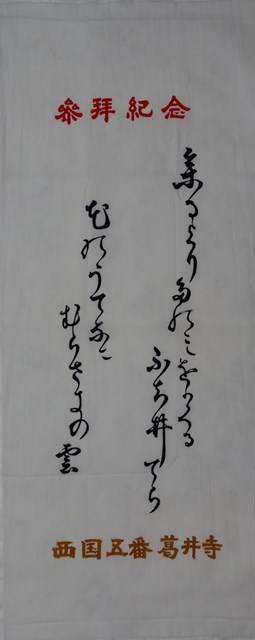 參拝紀念
参るより多能ミをかくる
ふち井てら
花能うてなに
むらさきの雲
西国五番 葛井寺